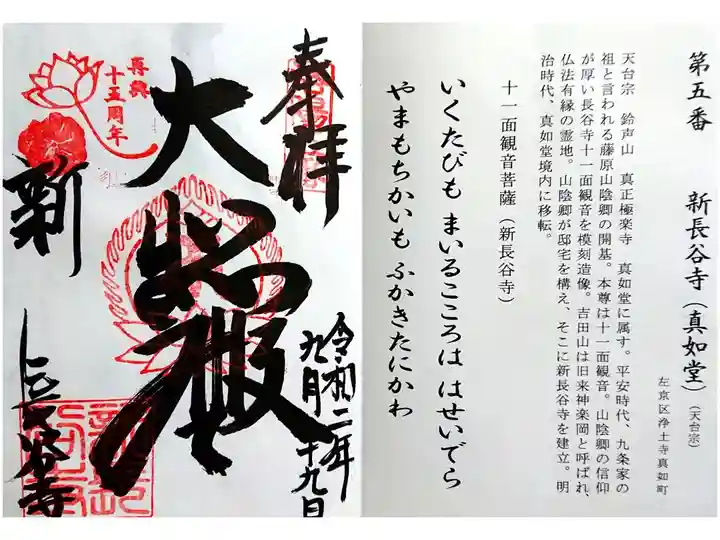 奉拝
再興
十五周年
大悲殿
令和二年
九月二十九日
新
長谷寺
第五番　新長谷寺（真如堂）（天台宗）
左京区浄土寺真如町
天台宗　鈴声山　真正極楽寺　真如堂に属す。平安時代、九条家の
祖と言われる藤原山陰卿の開基。本尊は十一面観音。山陰卿の信仰
が厚い長谷寺十一面観音を模刻造像。吉田山は旧来神楽岡と呼ばれ、
仏法有縁の霊地。山陰卿が邸宅を構え、そこに新長谷寺を建立。明
治時代、真如堂境内に移転。
十一面観音菩薩（新長谷寺）
いくたびも　まいるこころは　はせいでら
やまもちかいも　ふかきたにかわ